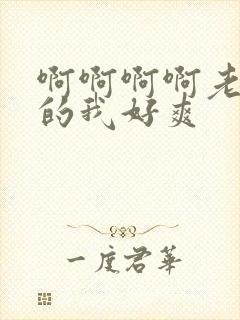 啊啊啊啊老
的我好爽
一度君华